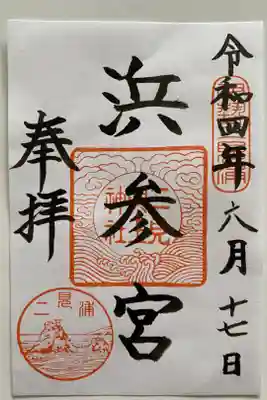 令和四年六月十七日
浜参宮
神社
奉拝
二見浦